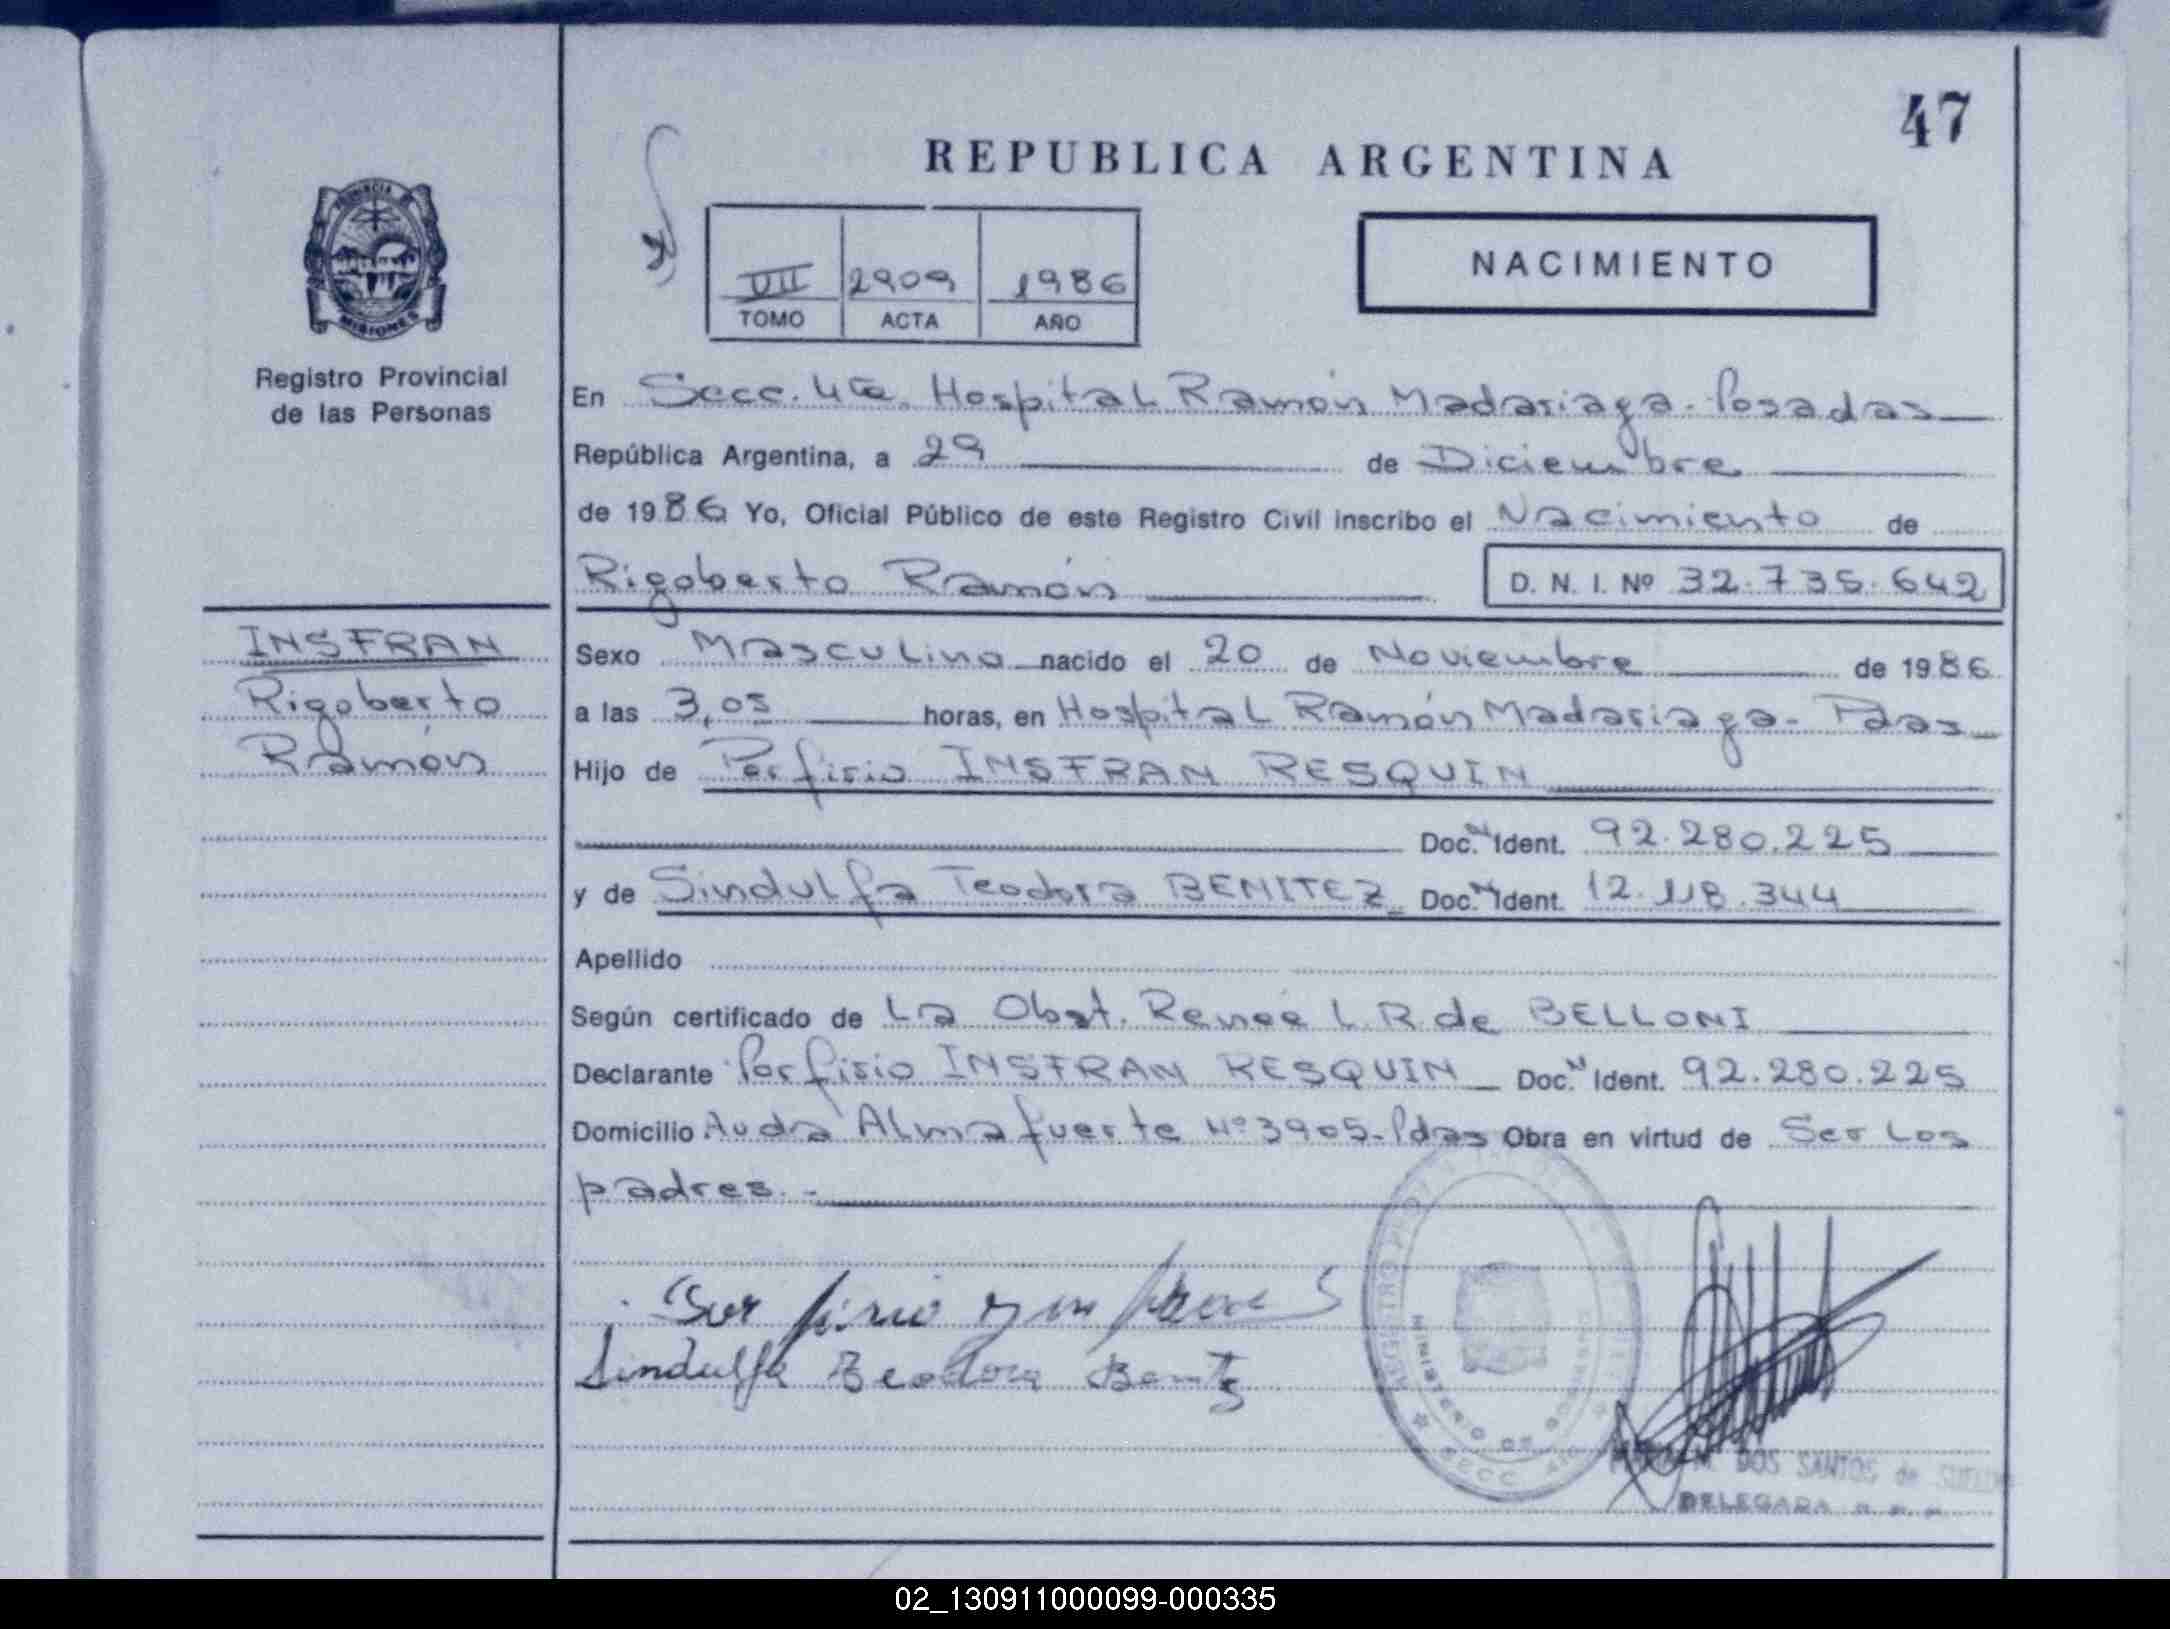 47
REPUBLICA ARGENTINA
PROVINCIA DE
MISIONES
Registro Provincial
de las Personas
VII 2909 1986
TOMO ACTA AÑO
NACIMIENTO
En Secc. 4ta. Hospital Ramón Madariaga - Posadas
República Argentina, a 29 de Diciembre
de 1986 Yo, Oficial Público de este Registro Civil inscribo el Nacimiento de
Rigoberto Ramón D. N. I. Nº 32.735.642
INSFRAN
Rigoberto
Ramón
Sexo Masculino nacido el 20 de Noviembre de 1986
a las 3,05 horas, en Hospital Ramón Madariaga - Pdas
Hijo de Porfirio INSFRAN RESQUIN
Doc. N Ident. 92.280.225
y de Sindulfa Teodora BENITEZ Doc. N Ident. 12.118.344
Apellido
Según certificado de La Obst. Reneé L.R. de BELLONI
Declarante Porfirio INSFRAN RESQUIN Doc. N Ident. 92.280.225
Domicilio Avda Almafuerte Nº 3905 - Pdas Obra en virtud de Ser Los
padres.-
Sindulfa Teodora
REGISTRO
MINISTERIO DE GOBIERNO
SECC.
DOS SANTOS de
DELEGADA
02_130911000099-000335